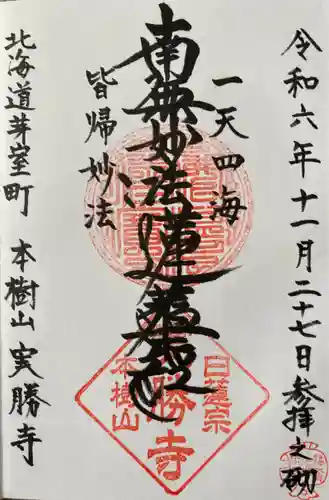 令和六年十一月二十七日参拝之砌
一天四海
南無妙法蓮華経
皆帰妙法
北海道芽室町 本樹山 実勝寺
日蓮宗
本樹山
勝寺